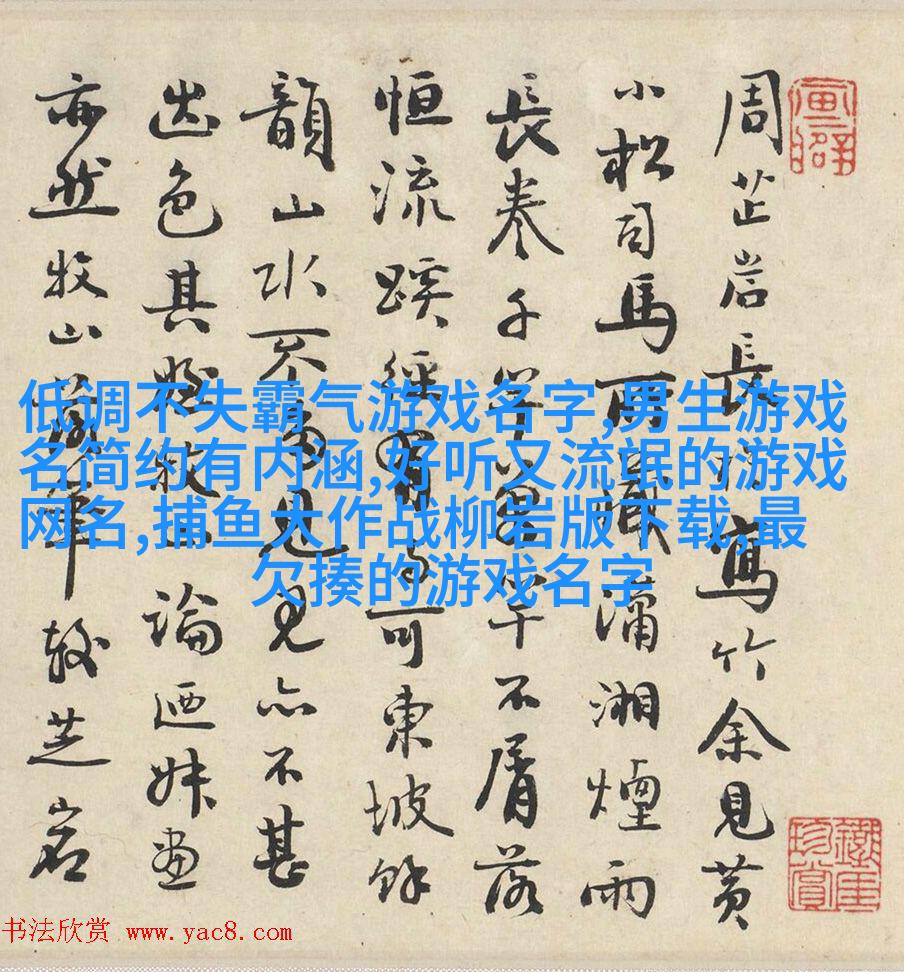 周芷岩長寫竹余見黄
小松司馬所藏瀟湘煙雨
長卷千竿萬竿不屑落
恒流蹊徑可東坡餘
韻山水不多見見亦不甚
出色其論廼妹畫
亦然牧山較芝岩
低调不失霸气游戏名字,男生游戏
名简约有内涵,好听又流氓的游戏
网名,捕鱼大作战柳岩版下载,最
欠揍的游戏名字
书法欣赏 www.yac8.com